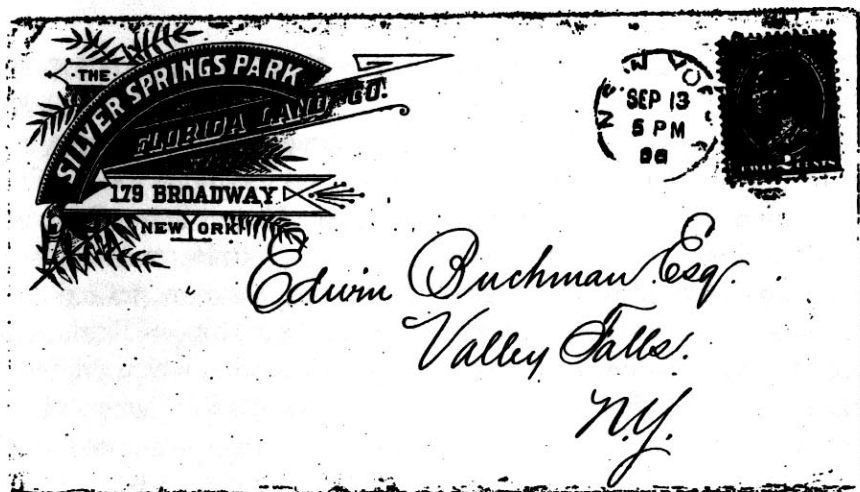 THE
SILVER SPRINGS PARK
FLORIDA LAND CO.
179 BROADWAY
NEW YORK
NEW YOR
SEP 13
5 PM
86
Edwin Buchman Esq.
Valley Falls.
N.Y.